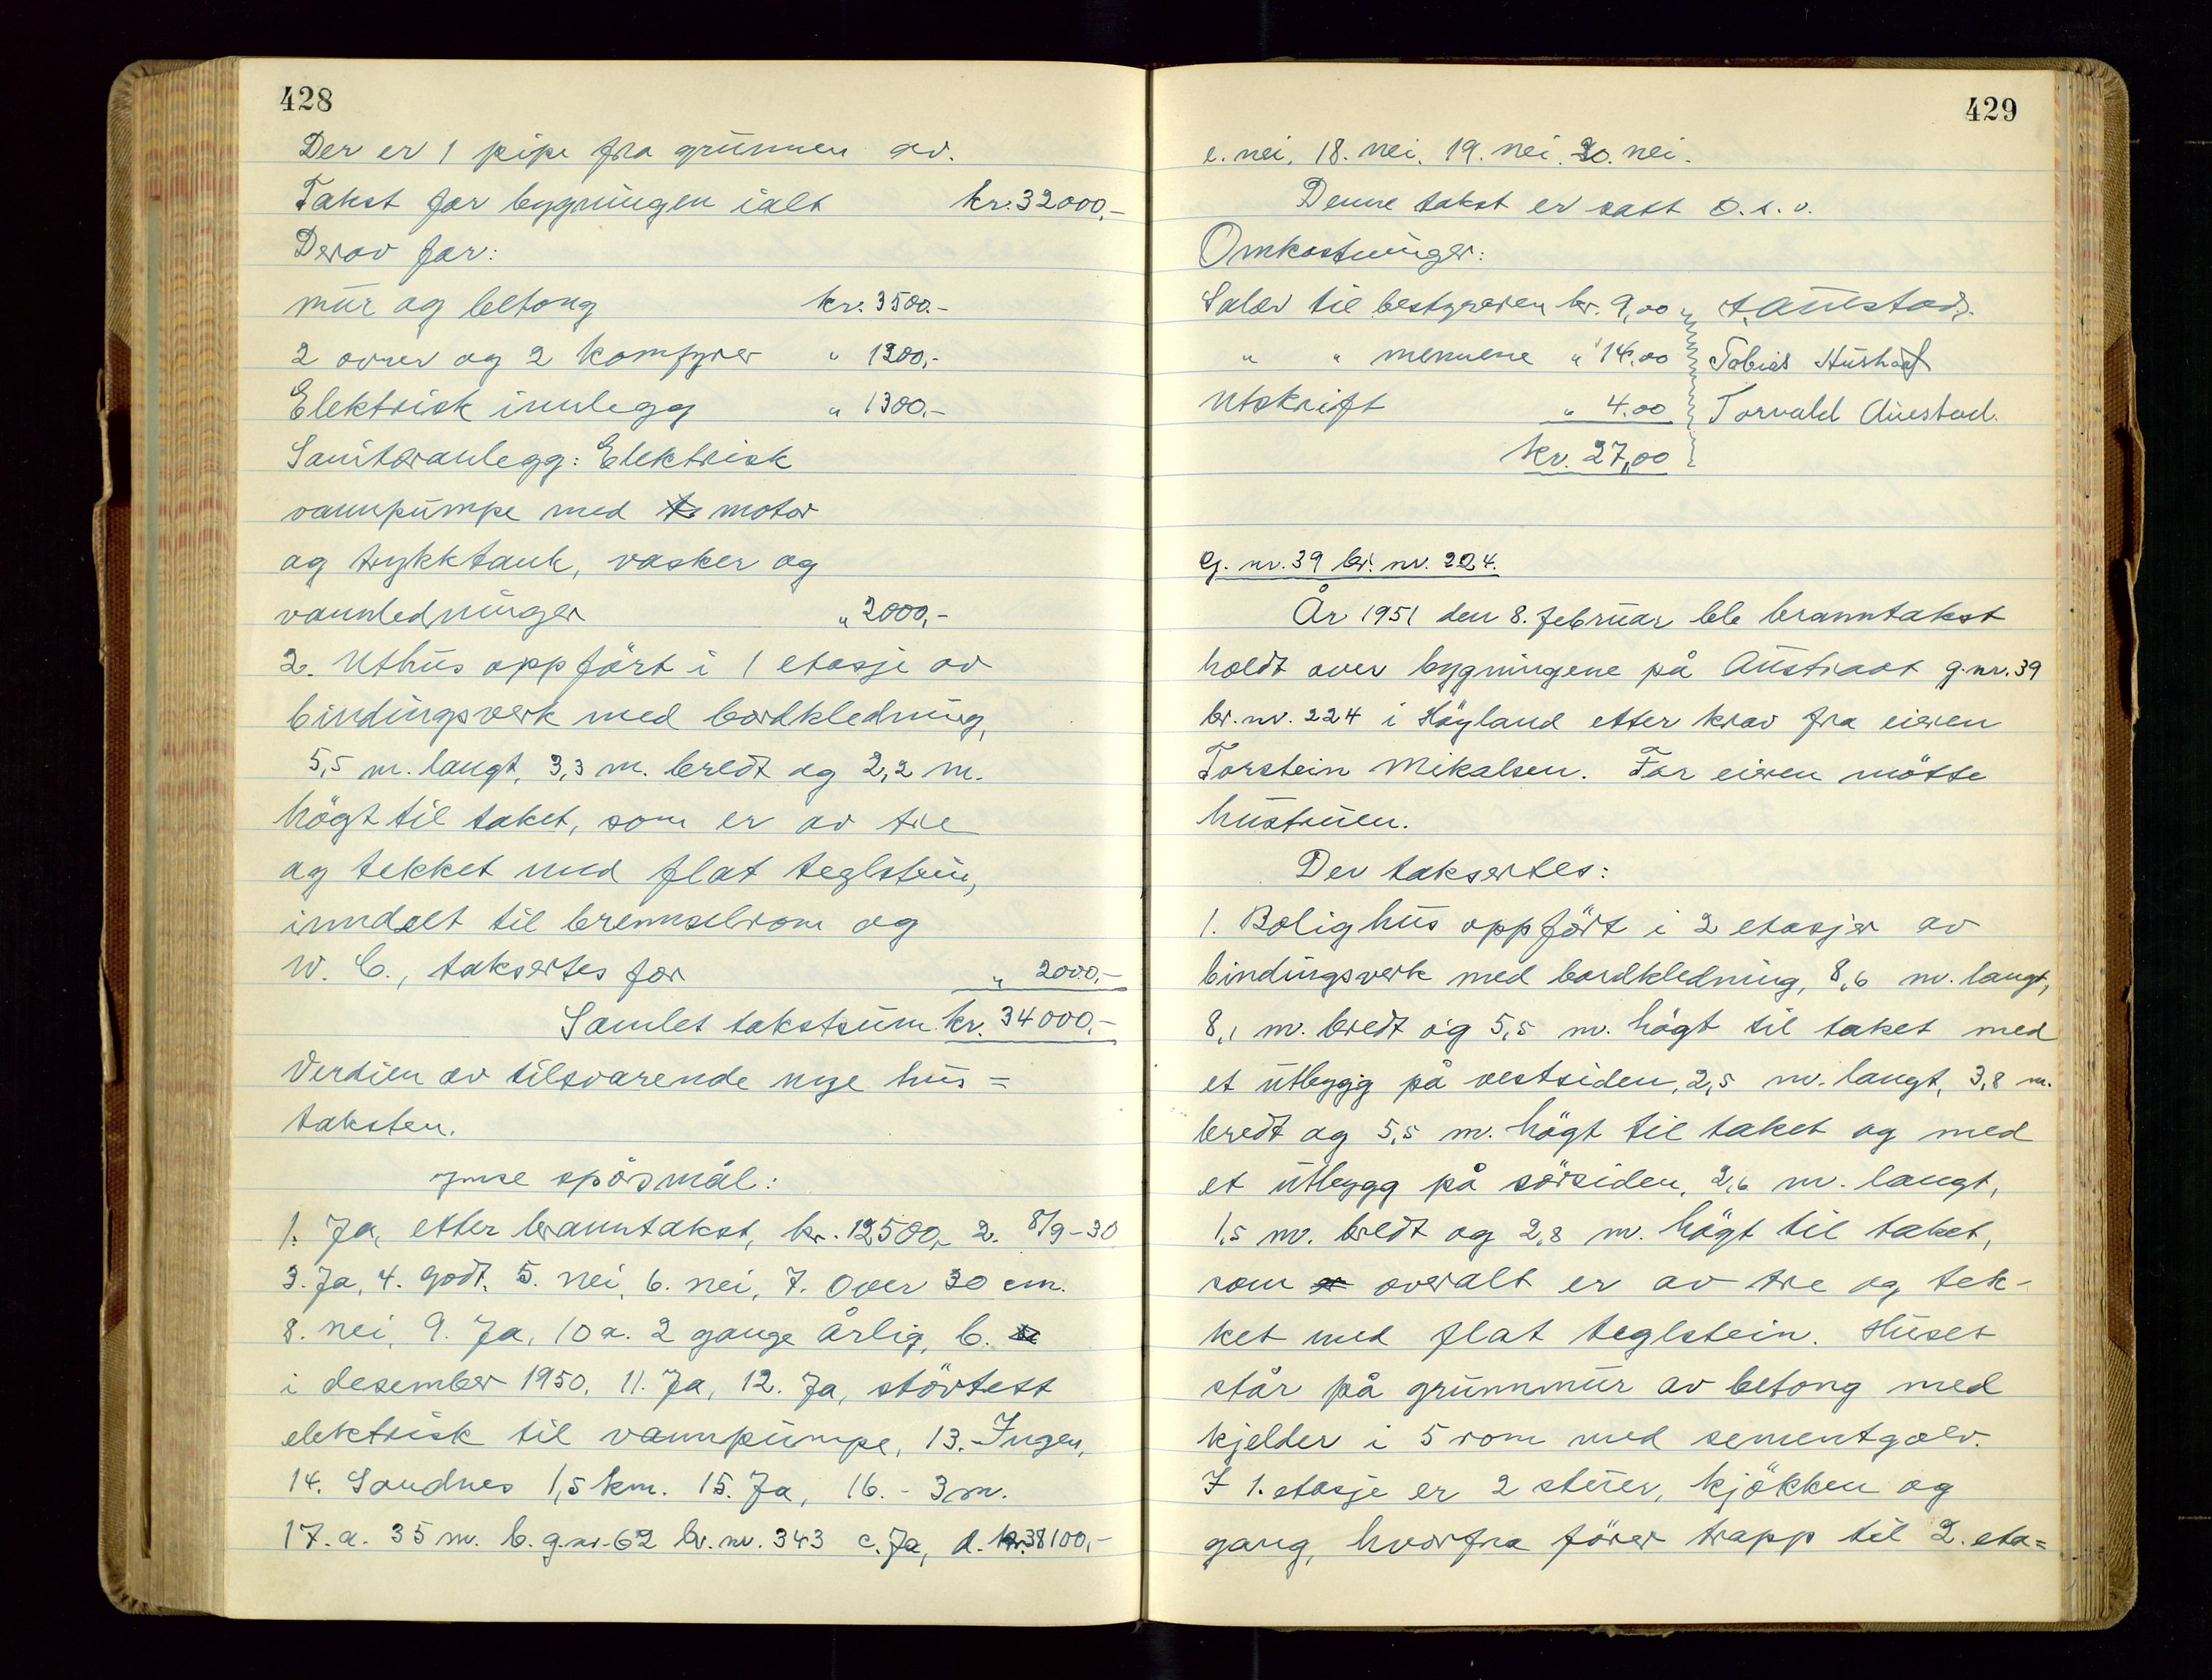 428
Der er 1 pipe fra grunnen av.
Takst for bygningen ialt kr. 32000,-
Derav for:
mur og betong kr. 3500.-
2 ovner og 2 komfyrer " 1200,-
Elektrisk innlegg " 1300,-
Sanitæranlegg: Elektrisk
vannpumpe med motor
og trykktank, vasker og
vannledninger " 2000,-
2. Uthus oppfört i 1 etasje av
bindingsverk med bordkledning,
5,5 m. langt, 3,3 m. bredt og 2,2 m.
högt til taket, som er av tre
og tekket med flat teglstein,
inndelt til brenselrom og
W. C., taksertes for " 2000,-
Samlet takstsum kr. 34000,-
Verdien av tilsvarende nye hus =
taksten.
Ymse spörsmål:
1. Ja, etter branntakst, kr. 12500,- 2. 8/9-30
3. Ja, 4. godt. 5. nei, 6. nei, 7. Over 30 cm.
8. nei, 9. Ja, 10 a. 2 gange årlig, b.
i desember 1950. 11. Ja, 12. Ja, störtest
elektrisk til vannpumpe, 13. Ingen,
14. Sandnes 1,5 km. 15. Ja, 16. - 3 m.
17. a. 35 m. b. g.nr. 62 br. nr. 343 c. Ja, d. kr. 38100,-
429
e. nei, 18. nei, 19. nei. 20. nei.
Denne takst er satt o.s.v.
Omkostninger:
Salær til bestyreren kr. 9,00 T. Auestad.
" " mennene " 14.00 Tobias Hushad
Utskrift " 4.00 Torvald Auestad.
kr. 27,00
G. nr. 39 br. nr. 224.
År 1951 den 8. februar ble branntakst
holdt over bygningene på Austraat g.nr. 39
br. nr. 224 i Höyland etter krav fra eieren
Torstein Mikalsen. For eieren mötte
hustruen.
Der taksertes:
1. Bolighus oppfört i 2 etasjer av
bindingsverk med bordkledning, 8,6 m. langt,
8,1 m. bredt og 5,5 m. högt til taket med
et utbygg på vestsiden, 2,5 m. langt, 3,8 m.
bredt og 5,5 m. högt til taket og med
et utbygg på sörsiden, 2,6 m. langt,
1,5 m. bredt og 2,8 m. högt til taket,
som overalt er av tre og tek-
ket med flat teglstein. Huset
står på grunnmur av betong med
kjelder i 5 rom med sementgolv.
I 1. etasje er 2 stuer, kjökken og
gang, hvorfra förer trapp til 2. eta=